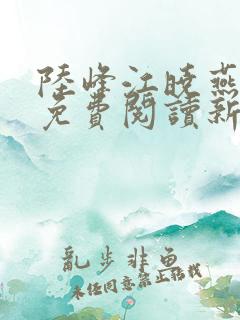 陸峰江曉燕
免費閱讀新
亂步非魚
未經同意禁止轉載